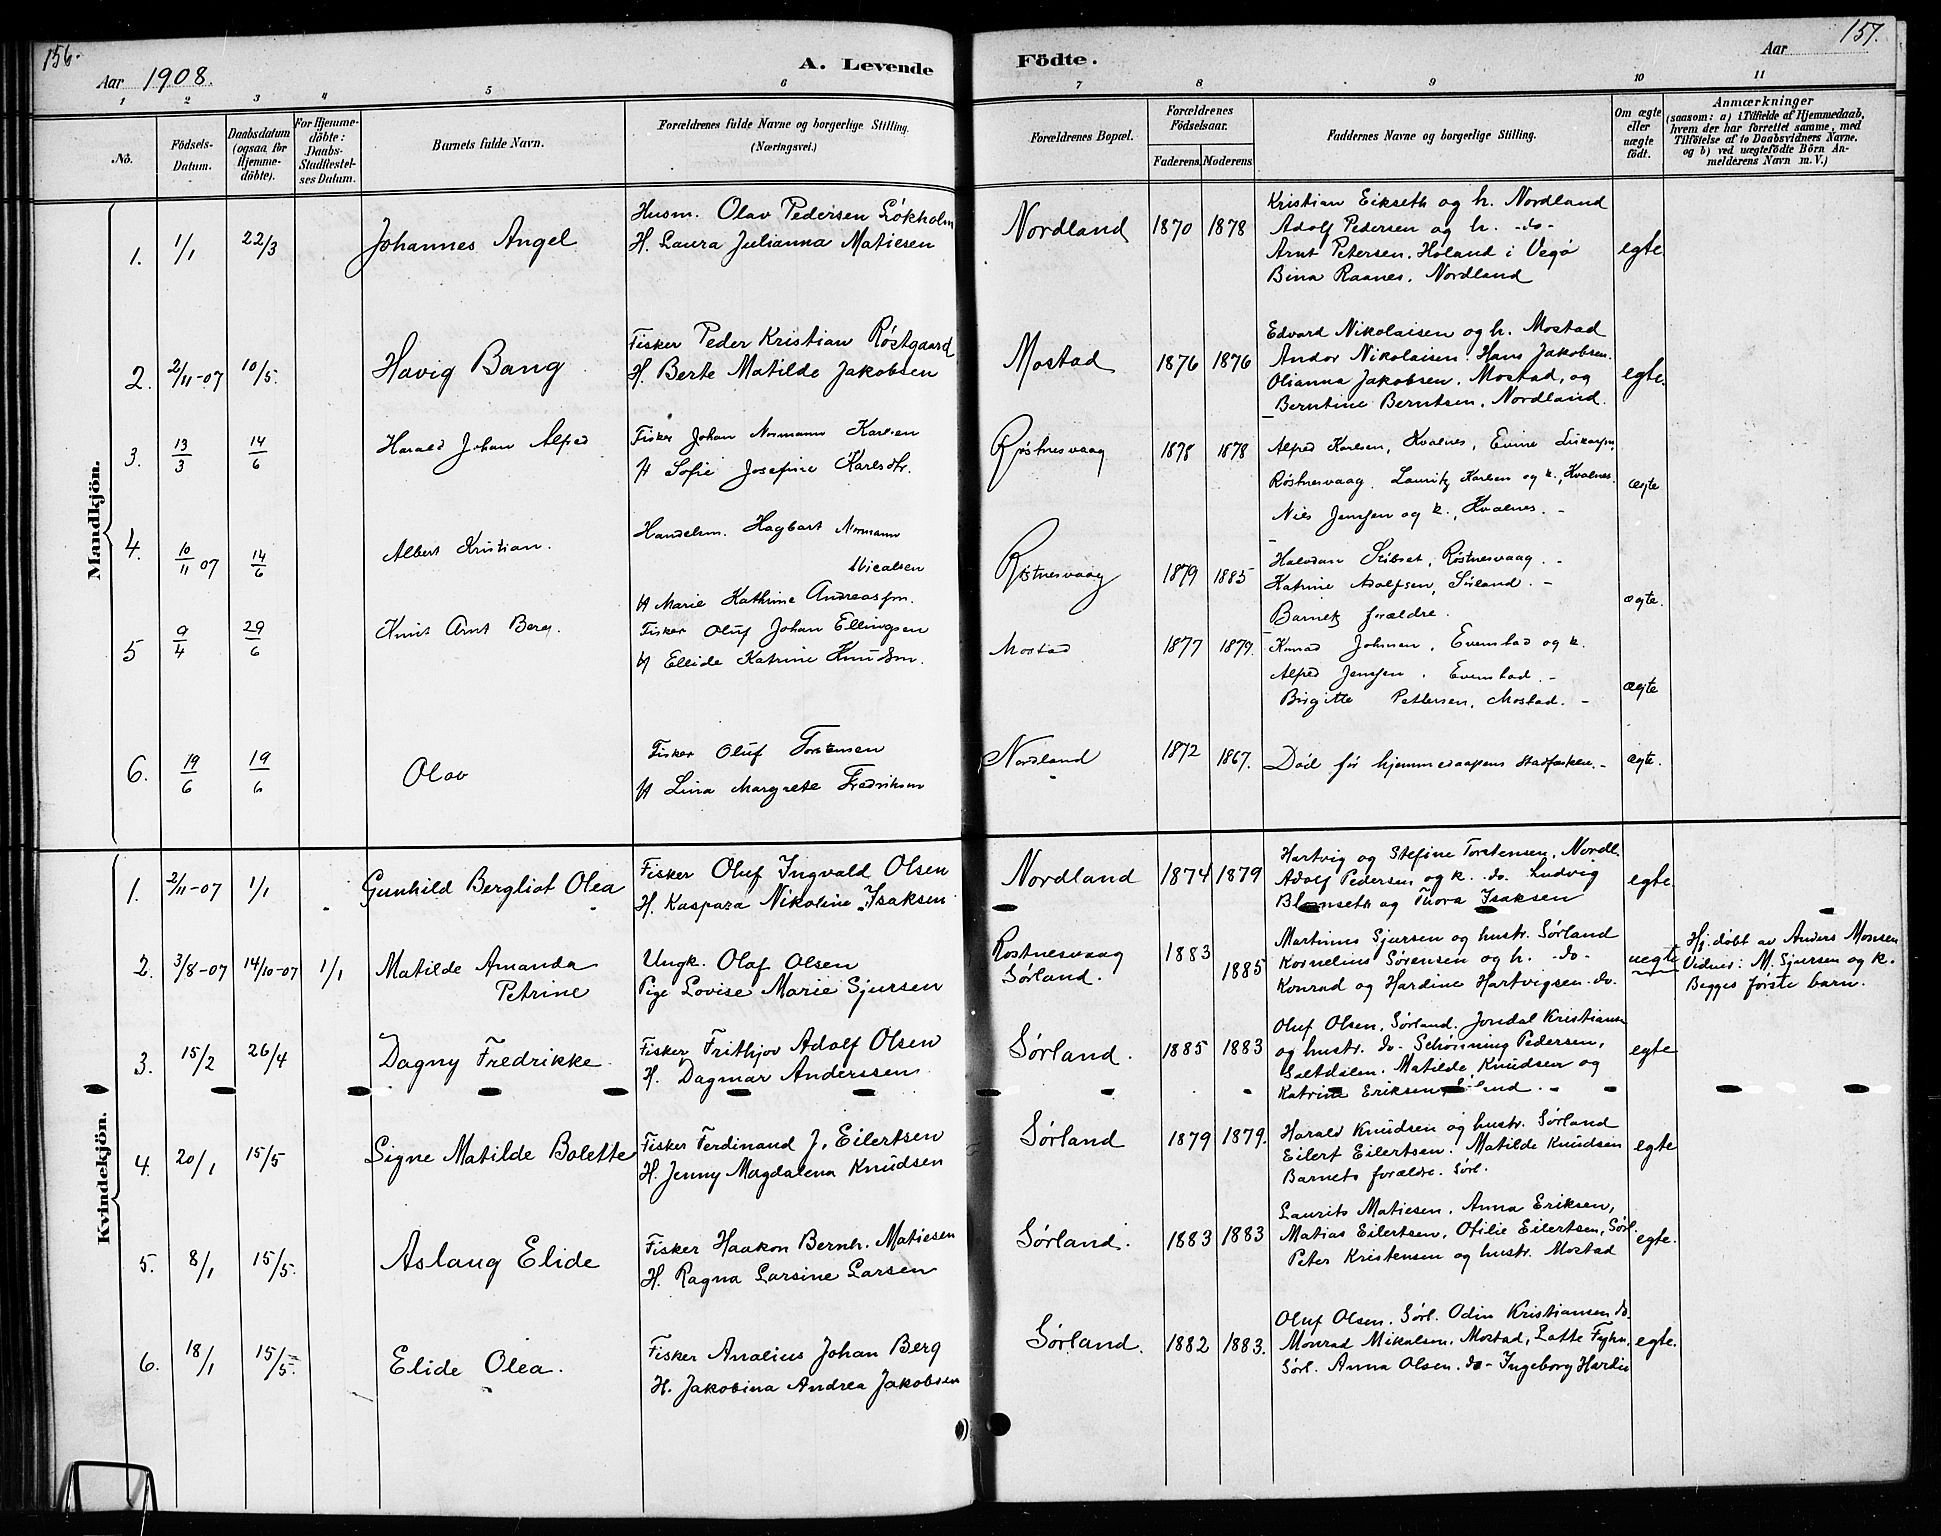 156.
Aar 1908.
A. Levende
1 2 3 4 5 6
No.
Födsels-Datum.
Daabsdatum (ogsaa for Hjemme-döbte).
For Hjemme-döbte: Daabs-Stadfæstel-ses Datum.
Barnets fulde Navn.
Forældrenes fulde Navne og borgerlige Stilling.
(Næringsvei.)
Mandkjön.
1. 1/1 22/3 Johannes Angel
Husm. Olav Pedersen Lökholm
H. Laura Julianna Matiesen
2. 2/11-07 10/5. Havig Bang
Fisker Peder Kristian Røstgaard
H. Berte Matilde Jakobsen
3. 13/3 14/6 Harald Johan Alfred
Fisker Johan Normann Karlsen
H Sofie Josefine Karlsdtr.
4. 10/11 07 14/6 Albert Kristian.
Handelsm. Hagbart Normann
Micalsen
H Marie Kathrine Andreassen.
5 9/4 29/6 Knut Arnt Berg.
Fisker Oluf Johan Ellingsen
H Ellide Katrine Knudsen.
6. 19/6 19/6 Olav
Fisker Oluf Torstensen
H Lina Margrete Fredriksen
Kvindekjön.
1. 2/11-07 1/1 Gunhild Bergliot Olea
Fisker Oluf Ingvald Olsen
H. Kaspara Nikoline Isaksen
2. 3/8-07 14/10-07 1/1 Matilde Amanda
Petrine
Ungk. Olaf Olsen
Pige Lovise Marie Sjursen
3. 15/2 26/4 Dagny Fredrikke.
Fisker Frithjov Adolf Olsen
H. Dagmar Anderssen
4. 20/1 15/5 Signe Matilde Bolette
Fisker Ferdinand J. Eilertsen
H. Jenny Magdalena Knudsen
5. 8/1 15/5. Aslaug Elide
Fisker Haakon Bernh. Matiesen
H. Ragna Larsine Larsen
6. 18/1 15/5. Elide Olea.
Fisker Analius Johan Berg
H. Jakobina Andrea Jakobsen
157.
Födte.
Aar
7 8 9 10 11
Forældrenes Bopæl.
Forældrenes Födselsaar.
Faderens. Moderens
Faddernes Navne og borgerlige Stilling.
Om ægte eller uægte födt.
Anmærkninger
(saasom: a) i Tilfælde af Hjemmedaab,
hvem der har forrettet samme, med
Tilföielse af to Daabsvidners Navne.
og b) ved uægtefödte Börn An-
melderens Navn m. V.)
Nordland 1870 1878
Kristian Eikseth og h. Nordland
Adolf Pedersen og h. -do-
Arnt Petersen. Høland i Vegø
Bina Raanes. Nordland
egte
Mostad 1876 1876
Edvard Nikolaisen og h. Mostad
Andor Nikolaisen. Hans Jakobsen.
Olianna Jakobsen. Mostad, og
Berntine Berntsen. Nordland.
egte.
Røstnesvaag 1878 1878
Alfred Karlsen, Kvalnes,
Røstnesvaag. Lauritz Karlsen og k., Kvalnes.
Nils Jenssen og k., Kvalnes. -
ægte
Røstnesvaag 1879 1885
Halvdan, Røstnesvaag. -
Katrine Adolfsen, Sørland. -
Barnets forældre.
ægte.
Mostad 1877 1879.
Konrad Johnsen, Evenstad og k.
Alfred Jenssen. Evenstad. -
Birgitte Pettersen, Mostad. -
ægte
Nordland 1872 1867.
Död för hjemmedaapens stadfæsten. -
ægte.
Nordland 1874 1879
Hartvig og Stefine Torstensen, Nordl.
Adolf Pedersen og k. do. Ludvig
og Thora Isaksen
egte
Røstnesvaag
Sørland. 1883 1885
Martinus Sjursen og hustr. Sørland
Kornelius Sørensen og h. -do-
Konrad og Hardine Hartvigsen. do.
uegte
Hj. døbt av Anders Monsen
Vidner: M. Sjursen og k.
Begges første barn.
Sørland. 1885 1883
Oluf Olsen. Sørland. Jondal Kristiansen
og hustr. do- Schønning Pedersen,
Saltdalen. Matilde Knudsen og
Katrine Eriksen, Sørland.
egte
Sørland 1879 1879.
Harald Knudsen og hustr. Sørland
Eilert Eilertsen. Matilde Knudsen
Barnets forældre. Sørl.
egte
Sørland. 1883 1883
Laurits Matiesen. Anna Eriksen,
Matias Eilertsen, Otilie Eilertsen, Sørl.
Peter Kristensen og hustr. Mostad
egte.
Sørland. 1882 1883.
Oluf Olsen. Sørl. Odin Kristiansen do.
Monrad Mikalsen, Mostad, Lotte Fyhn,
Sørl. Anna Olsen. do- Ingeborg
egte.